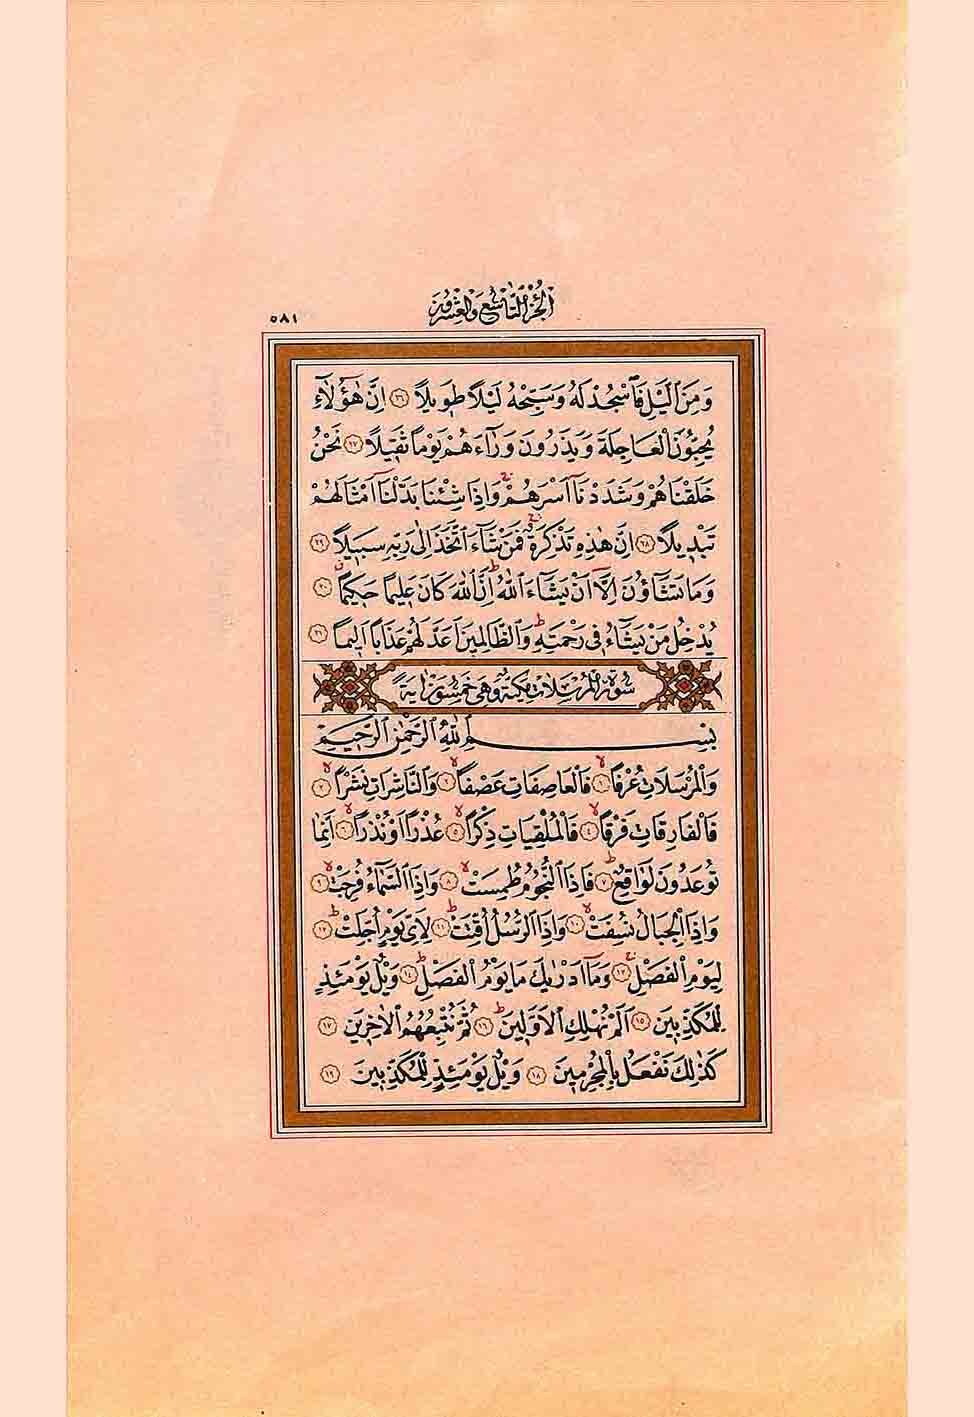 الجزء التاسع والعشرون
٥٨١
وَمِنَ الَّيْلِ فَاسْجُدْ لَهُ وَسَبِّحْهُ لَيْلًا طَوِيلًا ﴿٢٦﴾ اِنَّ هٰٓؤُلَٓاءِ
يُحِبُّونَ الْعَاجِلَةَ وَيَذَرُونَ وَرَٓاءَهُمْ يَوْمًا ثَقِيلًا ﴿٢٧﴾ نَحْنُ
خَلَقْنَاهُمْ وَشَدَدْنَٓا اَسْرَهُمْۚ وَاِذَا شِئْنَا بَدَّلْنَٓا اَمْثَالَهُمْ
تَبْدِيلًا ﴿٢٨﴾ اِنَّ هٰذِهِ تَذْكِرَةٌۚ فَمَنْ شَٓاءَ اتَّخَذَ اِلٰى رَبِّهِ سَبِيلًا ﴿٢٩﴾
وَمَا تَشَٓاؤُنَ اِلَّٓا اَنْ يَشَٓاءَ اللّٰهُۜ اِنَّ اللّٰهَ كَانَ عَلِيمًا حَكِيمًاۗ ﴿٣٠﴾
يُدْخِلُ مَنْ يَشَٓاءُ فِى رَحْمَتِهِۜ وَالظَّالِمِينَ اَعَدَّ لَهُمْ عَذَابًا اَلِيمًا ﴿٣١﴾
سورة المرسلات مكية وهى خمسون اية
بِسْمِ اللّٰهِ الرَّحْمٰنِ الرَّحِيمِ
وَالْمُرْسَلَاتِ عُرْفًاۙ ﴿١﴾ فَالْعَاصِفَاتِ عَصْفًاۙ ﴿٢﴾ وَالنَّاشِرَاتِ نَشْرًاۙ ﴿٣﴾
فَالْفَارِقَاتِ فَرْقًاۙ ﴿٤﴾ فَالْمُلْقِيَاتِ ذِكْرًاۙ ﴿٥﴾ عُذْرًا اَوْ نُذْرًاۙ ﴿٦﴾ اِنَّمَا
تُوعَدُونَ لَوَاقِعٌۜ ﴿٧﴾ فَاِذَا النُّجُومُ طُمِسَتْۙ ﴿٨﴾ وَاِذَا السَّمَٓاءُ فُرِجَتْۙ ﴿٩﴾
وَاِذَا الْجِبَالُ نُسِفَتْۙ ﴿١٠﴾ وَاِذَا الرُّسُلُ اُقِّتَتْۜ ﴿١١﴾ لِاَىِّ يَوْمٍ اُجِّلَتْۜ ﴿١٢﴾
لِيَوْمِ الْفَصْلِۚ ﴿١٣﴾ وَمَٓا اَدْرٰيكَ مَا يَوْمُ الْفَصْلِۜ ﴿١٤﴾ وَيْلٌ يَوْمَئِذٍ
لِلْمُكَذِّبِينَ ﴿١٥﴾ اَلَمْ نُهْلِكِ الْاَوَّلِينَۜ ﴿١٦﴾ ثُمَّ نُتْبِعُهُمُ الْاٰخِرِينَ ﴿١٧﴾
كَذٰلِكَ نَفْعَلُ بِالْمُجْرِمِينَ ﴿١٨﴾ وَيْلٌ يَوْمَئِذٍ لِلْمُكَذِّبِينَ ﴿١٩﴾